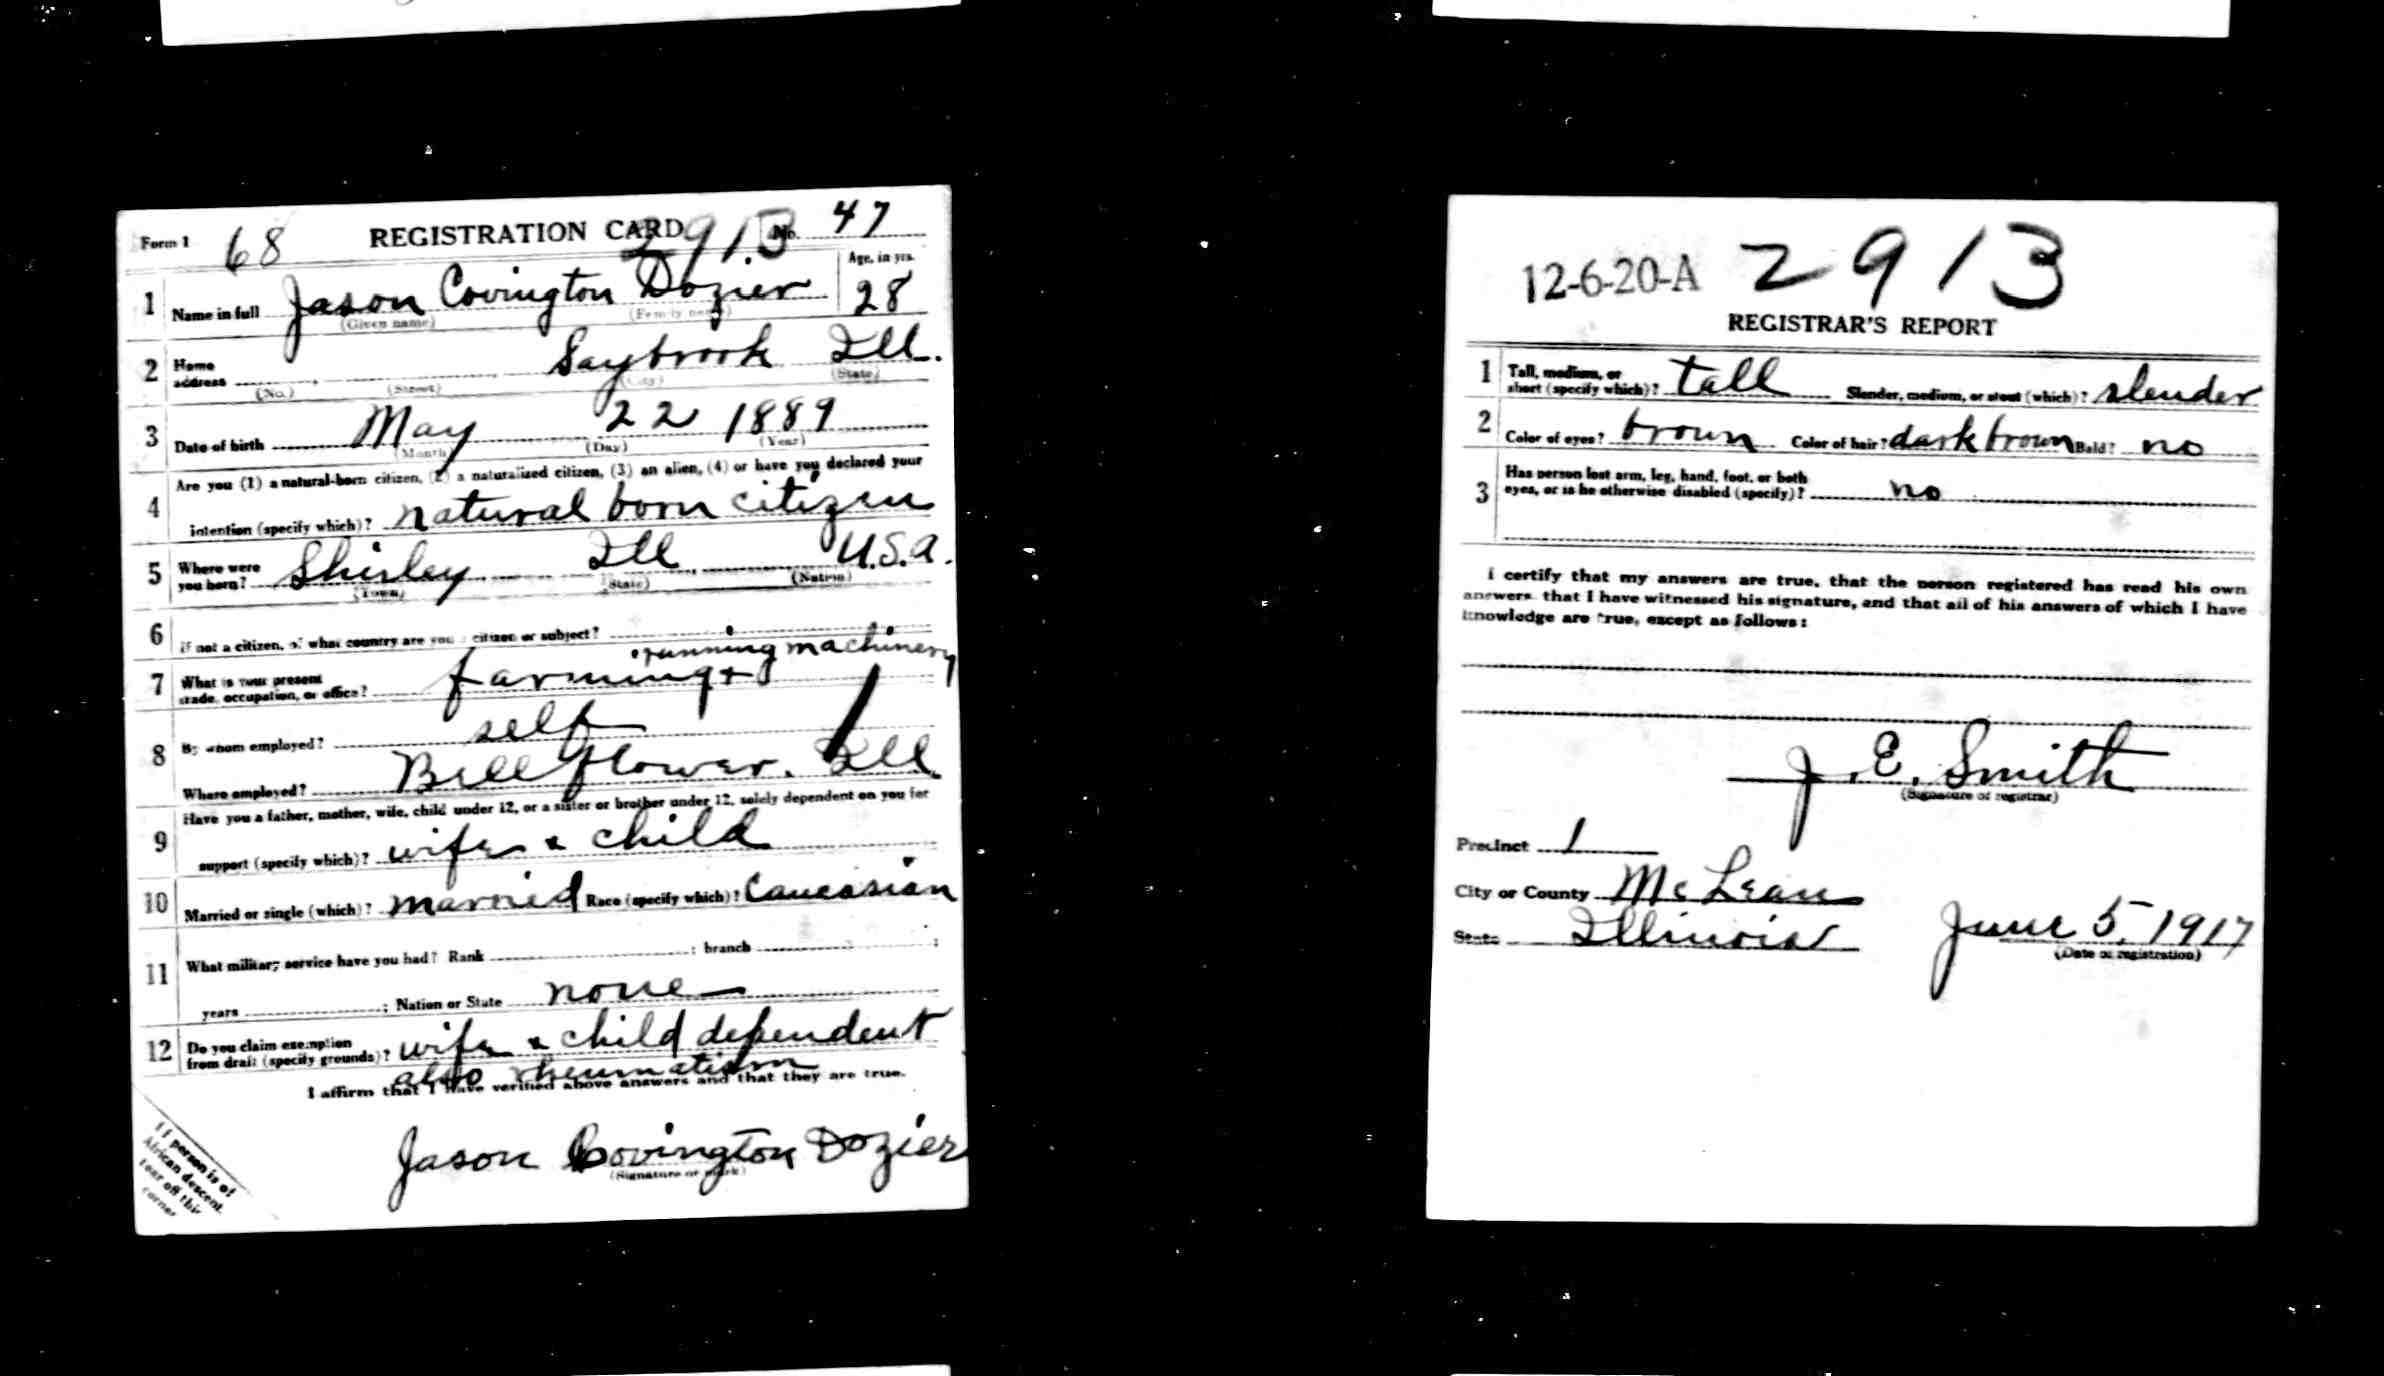 Form 1 68 REGISTRATION CARD 2913 No. 47
1 Name in full Jason Covington Dozier
(Given name) (Family name)
Age, in yrs.
28
2 Home address Saybrook Ill.
(No.) (Street) (City) (State)
3 Date of birth May 22 1889
(Month) (Day) (Year)
4 Are you (1) a natural-born citizen, (2) a naturalized citizen, (3) an alien, (4) or have you declared your
intention (specify which)? natural born citizen
5 Where were you born? Shirley Ill U.S.A.
(Town) (State) (Nation)
6 If not a citizen, of what country are you a citizen or subject?
running machinery
7 What is your present trade, occupation, or office? farming +
8 By whom employed? self
Where employed? Bellflower. Ill.
9 Have you a father, mother, wife, child under 12, or a sister or brother under 12, solely dependent on you for
support (specify which)? wife & child
10 Married or single (which)? married Race (specify which)? Caucasian
11 What military service have you had? Rank ; branch ;
years ; Nation or State none
12 Do you claim exemption from draft (specify grounds)? wife & child dependent
also rheumatism
I affirm that I have verified above answers and that they are true.
Jason Covington Dozier
(Signature or mark)
If person is of
African descent,
tear off this
corner
12-6-20-A 2913
REGISTRAR'S REPORT
1 Tall, medium, or short (specify which)? tall Slender, medium, or stout (which)? slender
2 Color of eyes? brown Color of hair? dark brown Bald? no
3 Has person lost arm, leg, hand, foot, or both
eyes, or is he otherwise disabled (specify)? no
I certify that my answers are true, that the person registered has read his own
answers, that I have witnessed his signature, and that all of his answers of which I have
knowledge are true, except as follows:
J. E. Smith
(Signature of registrar)
Precinct 1
City or County McLean
State Illinois June 5, 1917
(Date of registration)